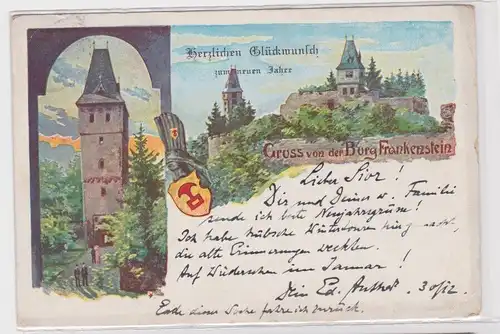 Herzlichen Glückwunsch
zum neuen Jahre
Gruss von der Burg Frankenstein
Lieber
Dir und Deiner w. Familie
sende ich beste Neujahrsgrüsse!
Ich habe hübsche hier gemacht,
die alte Erinnerungen weckten.
Auf Wiedersehen im Januar!
Dein Ed. 30/12
Ende dieser Woche fahre ich zurück.